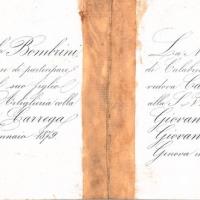 Bombrini
di partecipare
suo figlio
Artiglieria colla
Carrega
1879
La
di Calabria
vedova
alla S. V.
Giovan
Giovan
Genova